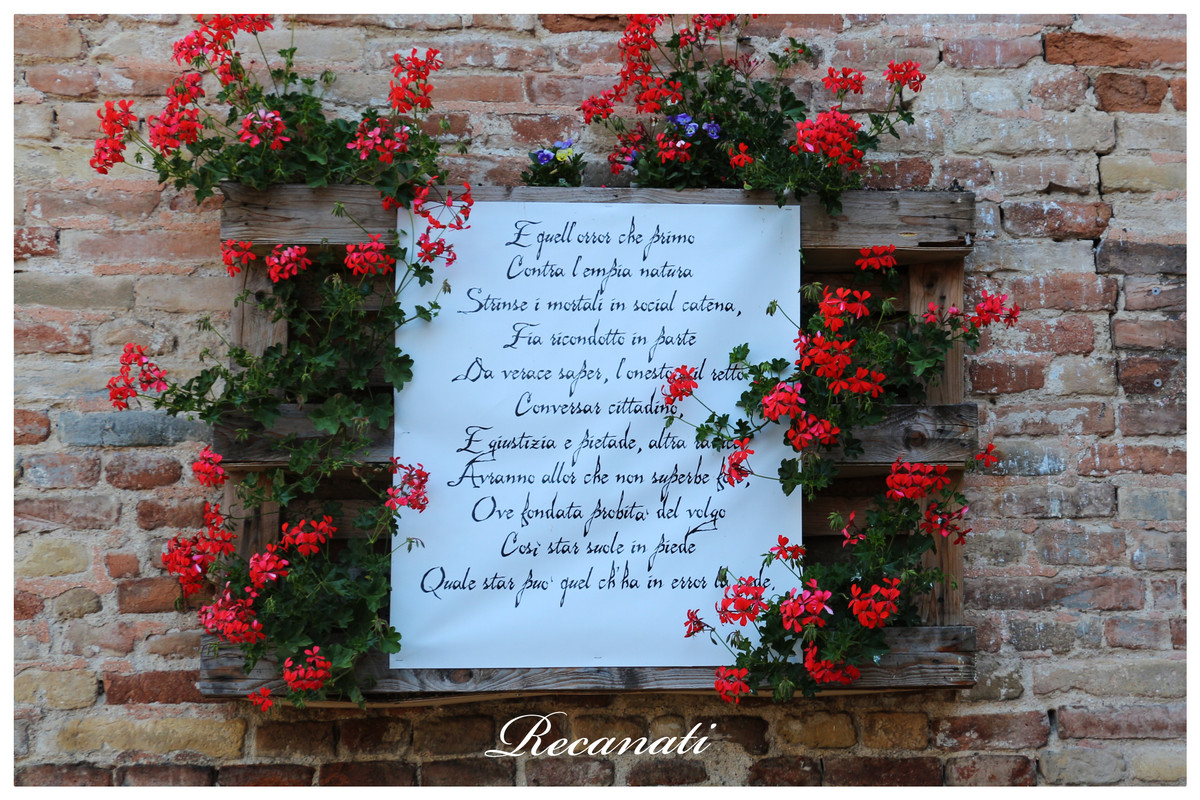 E quell'orror che primo
Contra l'empia natura
Strinse i mortali in social catena,
Fia ricondotto in parte
Da verace saper, l'onesto il retto
Conversar cittadino,
E giustizia e pietade, altra
Avranno allor che non superbe
Ove fondata probita' del volgo
Così star suole in piede
Quale star puo' quel ch'ha in error la
Recanati